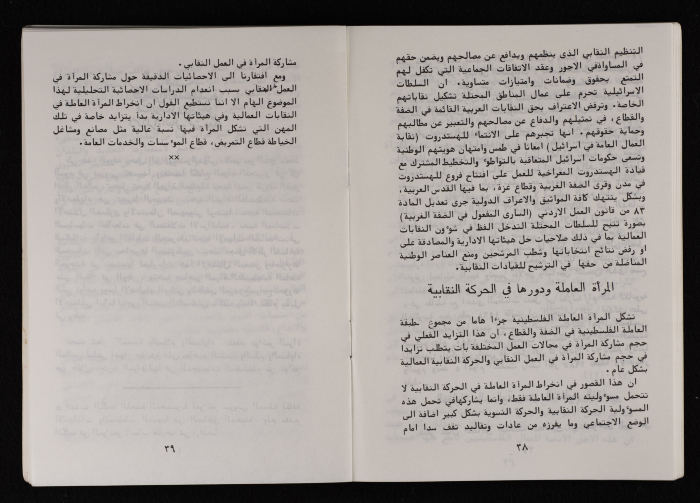 التنظيم النقابي الذي ينظمهم ويدافع عن مصالحهم ويضمن حقهم
في المساواة في الاجور وعقد الاتفاقات الجماعية التي تكفل لهم
التمتع بحقوق وضمانات وامتيازات متساوية. ان السلطات
الاسرائيلية تحرم على عمال المناطق المحتلة تشكيل نقاباتهم
الخاصة. وترفض الاعتراف بحق النقابات العربية القائمة في الضفة
والقطاع، في تمثيلهم والدفاع عن مصالحهم والتعبير عن مطالبهم
وحماية حقوقهم. انها تجبرهم على الانتماء للهستدروت (نقابة
العمال العامة في اسرائيل) امعانا في طمس وامتهان هويتهم الوطنية
وتسعى حكومات اسرائيل المتعاقبة بالتواطوء والتخطيط المشترك مع
قيادة الهستدروت المغراخية للعمل على افتتاح فروع للهستدروت
في مدن وقرى الضفة الغربية وقطاع غزة، بما فيها القدس العربية،
وبشكل ينتهك كافة المواثيق والاعراف الدولية جرى تعديل المادة
٨٣ من قانون العمل الاردني (الساري المفعول في الضفة الغربية)
بصورة تتيح للسلطات المحتلة التدخل الفظ في شوءون النقابات
العمالية بما في ذلك صلاحيات حل هيئاتها الادارية والمصادقة على
او رفض نتائج انتخاباتها وشطب المرشحين ومنع العناصر الوطنية
المناضلة من حقها في الترشيح للقيادات النقابية.
المرأة العاملة ودورها في الحركة النقابية
تشكل المرأة العاملة الفلسطينية جزءا هاما من مجموع طبقة
العاملة الفلسطينية في الضفة والقطاع، ان هذا التزايد الفعلي في
حجم مشاركة المرأة في مجالات العمل المختلفة بات يتطلب تزايدا
في حجم مشاركة المرأة في العمل النقابي والحركة النقابية العمالية
بشكل عام.
ان هذا القصور في انخراط المرأة العاملة في الحركة النقابية لا
تتحمل مسوءوليته المرأة العاملة فقط، وانما يشاركها في تحمل هذه
المسوءولية الحركة النقابية والحركة النسوية بشكل كبير اضافة الى
الوضع الاجتماعي وما يفرزه من عادات وتقاليد تقف سدا امام
٣٨
مشاركة المرأة في العمل النقابي.
ومع افتقارنا الى الاحصائيات الدقيقة حول مشاركة المرأة في
العمل النقابي بسبب انعدام الدراسات الاحصائية التحليلية لهذا
الموضوع الهام الا اننا نستطيع القول ان انخراط المرأة العاملة في
النقابات العمالية وفي هيئاتها الادارية بدأ يتزايد خاصة في تلك
المهن التي تشكل المرأة فيها نسبة عالية مثل مصانع ومشاغل
الخياطة قطاع التمريض، قطاع الموءسسات والخدمات العامة.
××
٣٩